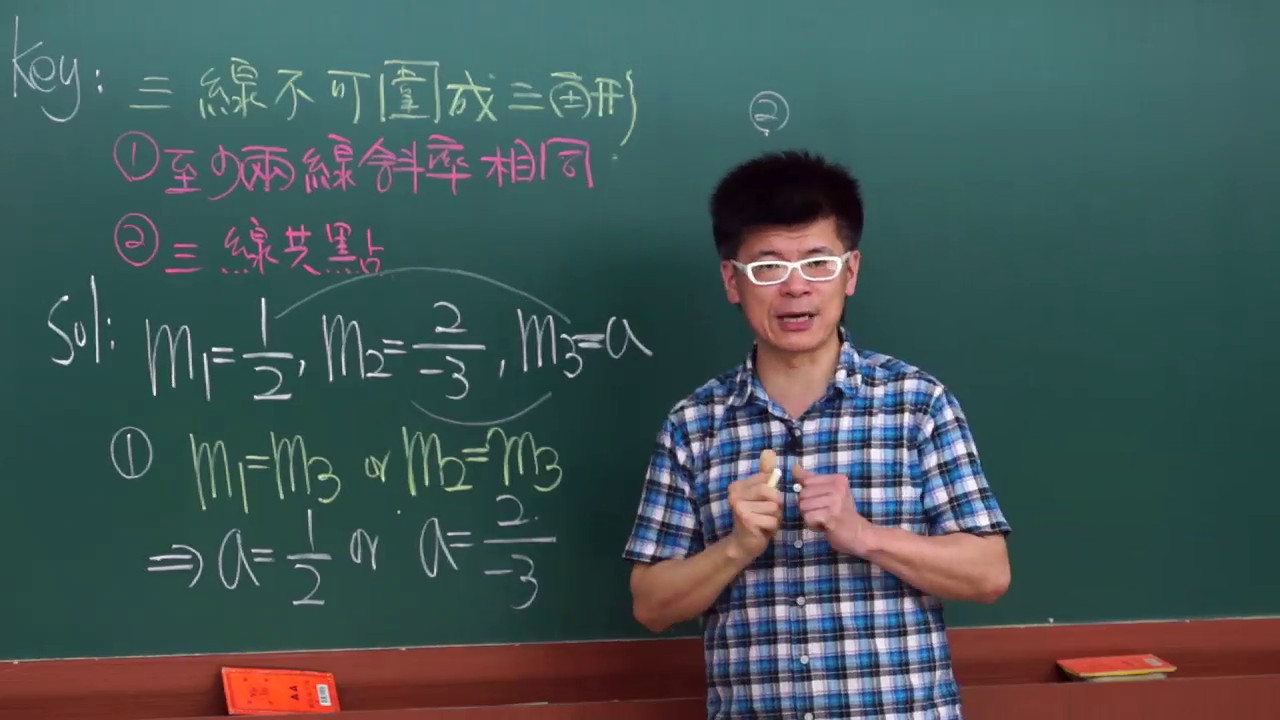 Key: 三線不可圍成三角形
①至少兩線斜率相同
②三線共點
Sol: m₁=1/2, m₂=2/-3, m₃=a
① m₁=m₃ or m₂=m₃
⇒ a=1/2 or a=2/-3
②